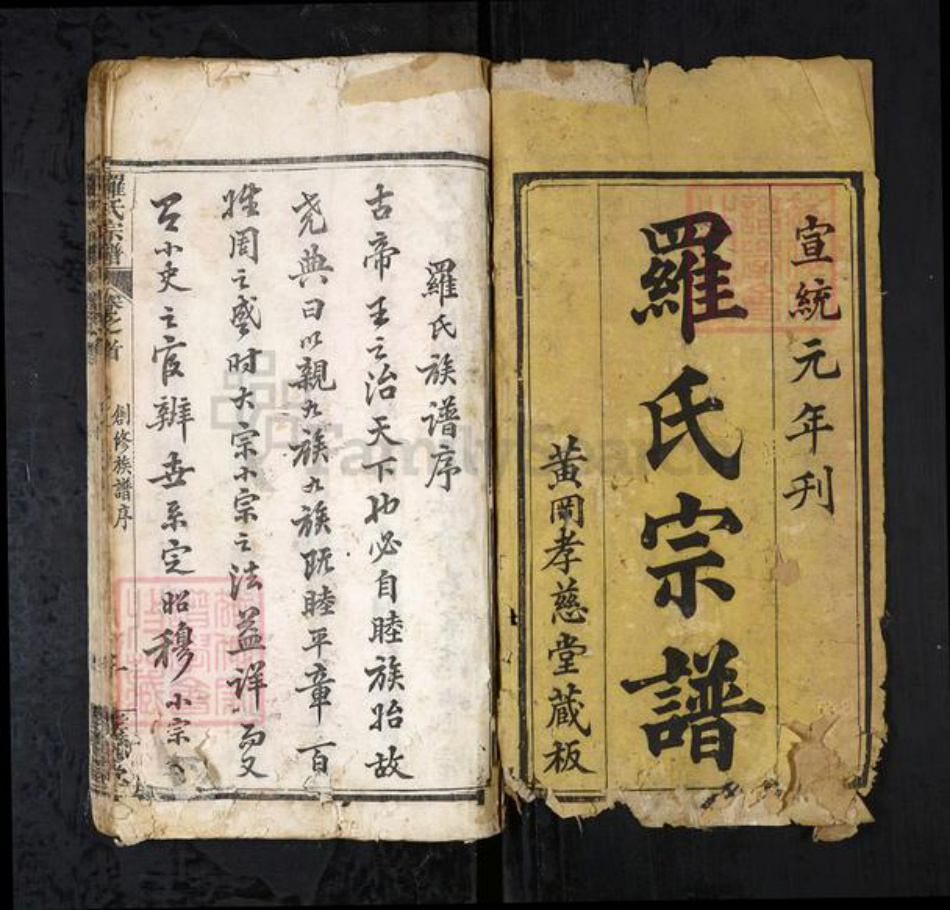 宣統元年刊
羅氏宗譜
黃岡孝慈堂蔵板
羅氏族譜序
古帝王之治天下也必自睦族始故
堯典曰以親九族九族既睦平章百
姓周之盛时大宗小宗之法益详而又
小史之官辨世系定昭穆小宗
羅氏宗譜
卷之首
創修族譜序
FamilySearch